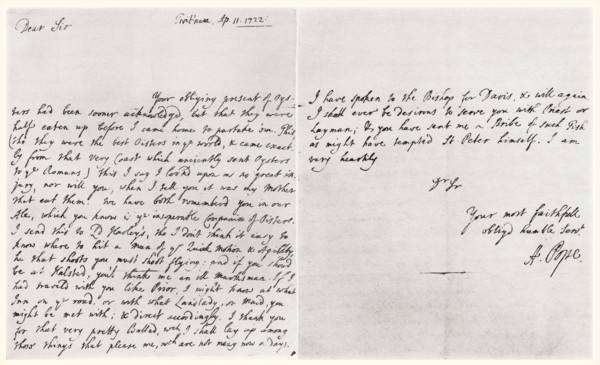 Twitnam, Ap. 11. 1722.
Dear Sir
Your obliging present of Oys-
ters had been sooner acknowledg'd, but that they were
half eaten up before I came home to partake 'em. This
(tho' they were the best Oisters in yᵉ world, & came exact-
ly from that very Coast which anciently sent Oysters
to yᵉ Romans) This I say I look'd upon as no great in-
jury, nor will you, when I tell you it was my Mother
that eat them. We have both rememberd you in our
Ale, which you know is yᵉ inseparable Companion of Oisters.
I send this to Ld Harley's, tho I don't think it easy to
know where to hit a Man of yʳ Quick Motion & Agility
he that shoots you must shoot flying: and if you should
be at Halsted, you'l thinke me an ill Marksman. If I
had traveld with you like Prior, I might know at what
Inn on yᵉ road, or with what Landlady, or Maid, you
might be met with; & direct accordingly. I thank you
for that very pretty Ballad, wᶜʰ I shall lay up among
those things that please me, wᶜʰ are not many now a days.
I have spoken to the Bishop for Davis, & will again
I shall ever be desirous to serve you with Priest or
Layman; & you have sent me a Bribe of such Fish
as might have tempted St. Peter himself. I am
very heartily
Dʳ Sʳ
Your most faithfull
obligd humble Servt
A. Pope.